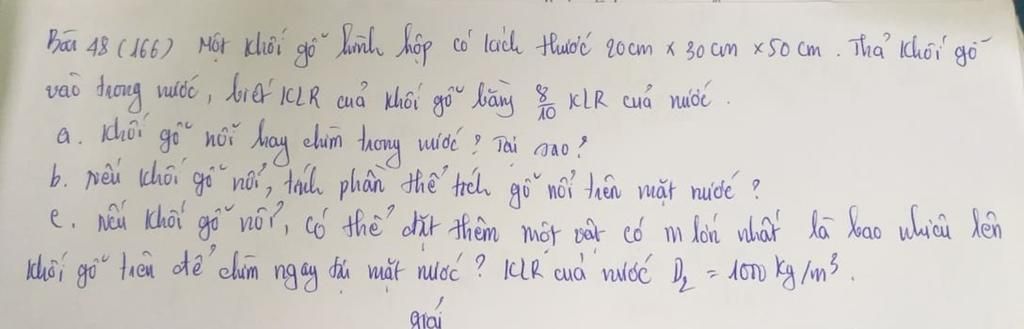 Bài 48 (166) Một khối gỗ hình hộp có kích thước 20cm × 30cm × 50cm. Thả khối gỗ
vào trong nước, biết KLR của khối gỗ bằng 8/10 KLR của nước.
a. Khối gỗ nổi hay chìm trong nước? Tại sao?
b. Nếu khối gỗ nổi, tính phần thể tích gỗ nổi trên mặt nước?
c. Nếu khối gỗ nổi, có thể đặt thêm một vật có m lớn nhất là bao nhiêu lên
khối gỗ trên để chìm ngay dưới mặt nước? KLR của nước D₂ = 1000 kg/m³.
Giải